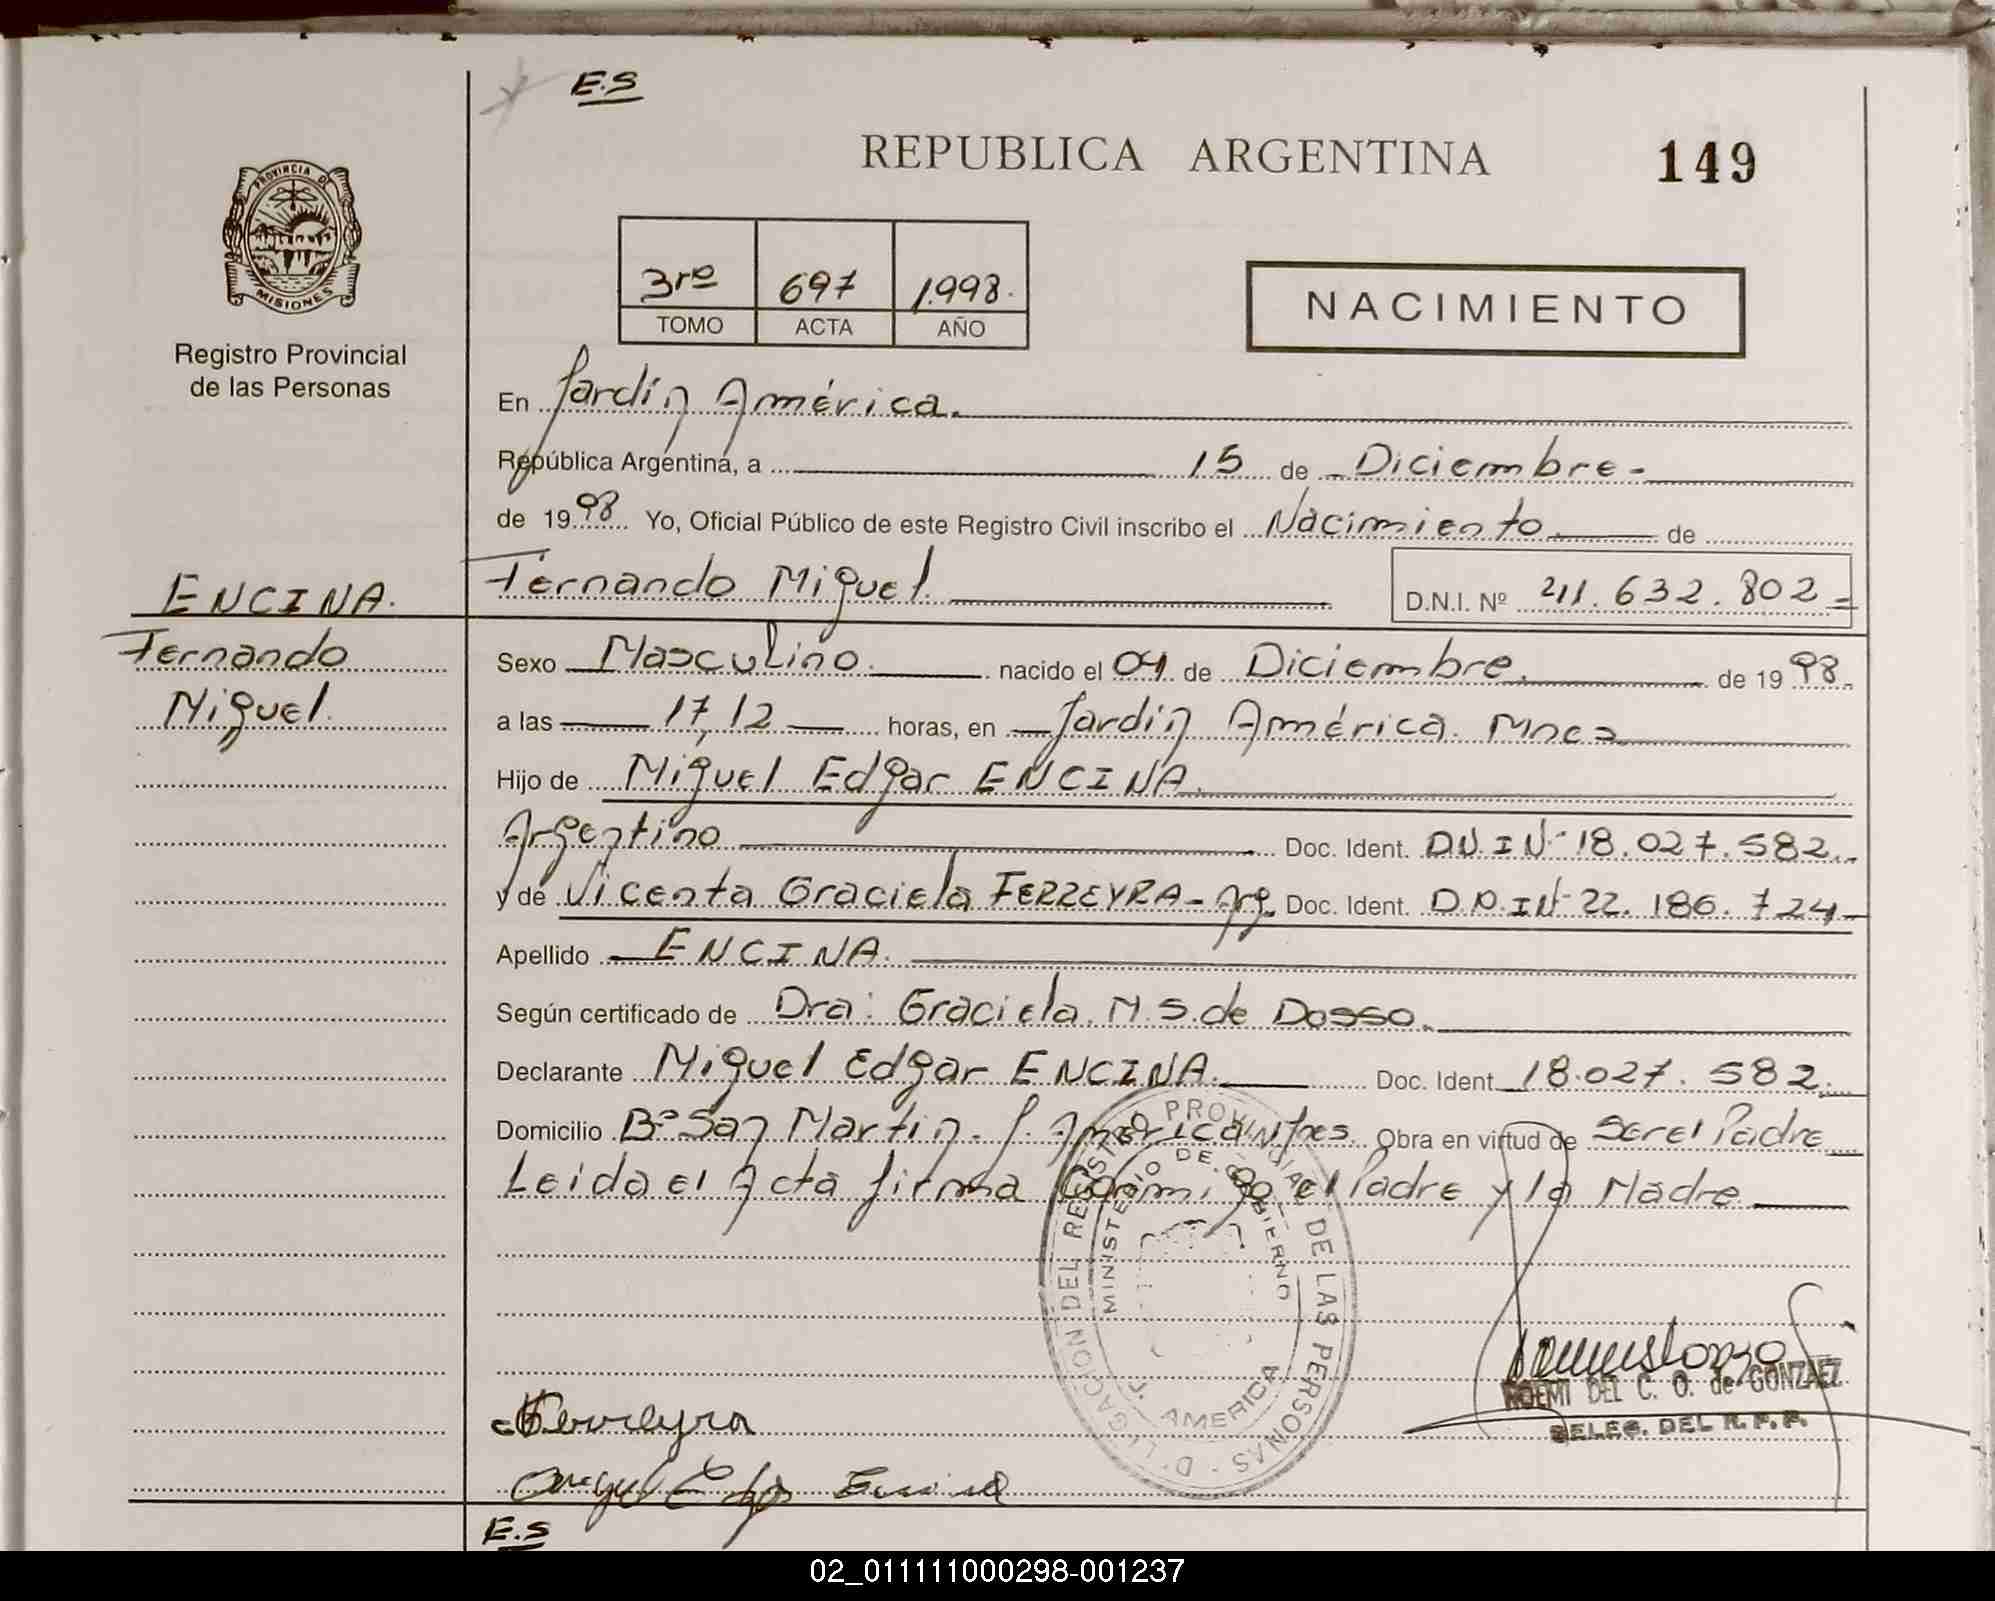 E.S
REPUBLICA ARGENTINA
149
PROVINCIA DE
MISIONES
Registro Provincial
de las Personas
3ro 697 1.998.
TOMO ACTA AÑO
NACIMIENTO
En Jardín América.
República Argentina, a 15 de Diciembre.
de 1998 Yo, Oficial Público de este Registro Civil inscribo el Nacimiento de
ENCINA.
Fernando
Miguel.
Fernando Miguel. D.N.I. Nº 41.632.802
Sexo Masculino. nacido el 04 de Diciembre. de 1998.
a las 17,12 horas, en Jardín América. Mnes
Hijo de Miguel Edgar ENCINA.
Argentino Doc. Ident. D.N.I Nº 18.027.582
y de Vicenta Graciela FERREYRA - Arg. Doc. Ident. D.N.I Nº 22.186.724
Apellido ENCINA.
Según certificado de Dra: Graciela. M. S. de Dosso.
Declarante Miguel Edgar ENCINA. Doc. Ident 18.027.582.
Domicilio Bº San Martin. J. América Mnes. Obra en virtud de Ser el Padre
Leida el Acta firma Conmigo el Padre y la Madre
DELEGACION DEL REGISTRO PROVINCIAL DE LAS PERSONAS
MINISTERIO DE GOBIERNO
J. AMERICA
NOEMI DEL C. O. de GONZALEZ
DELEG. DEL R.P.P.
Ferreyra
Miguel Edgar Encina
E.S
02_011111000298-001237